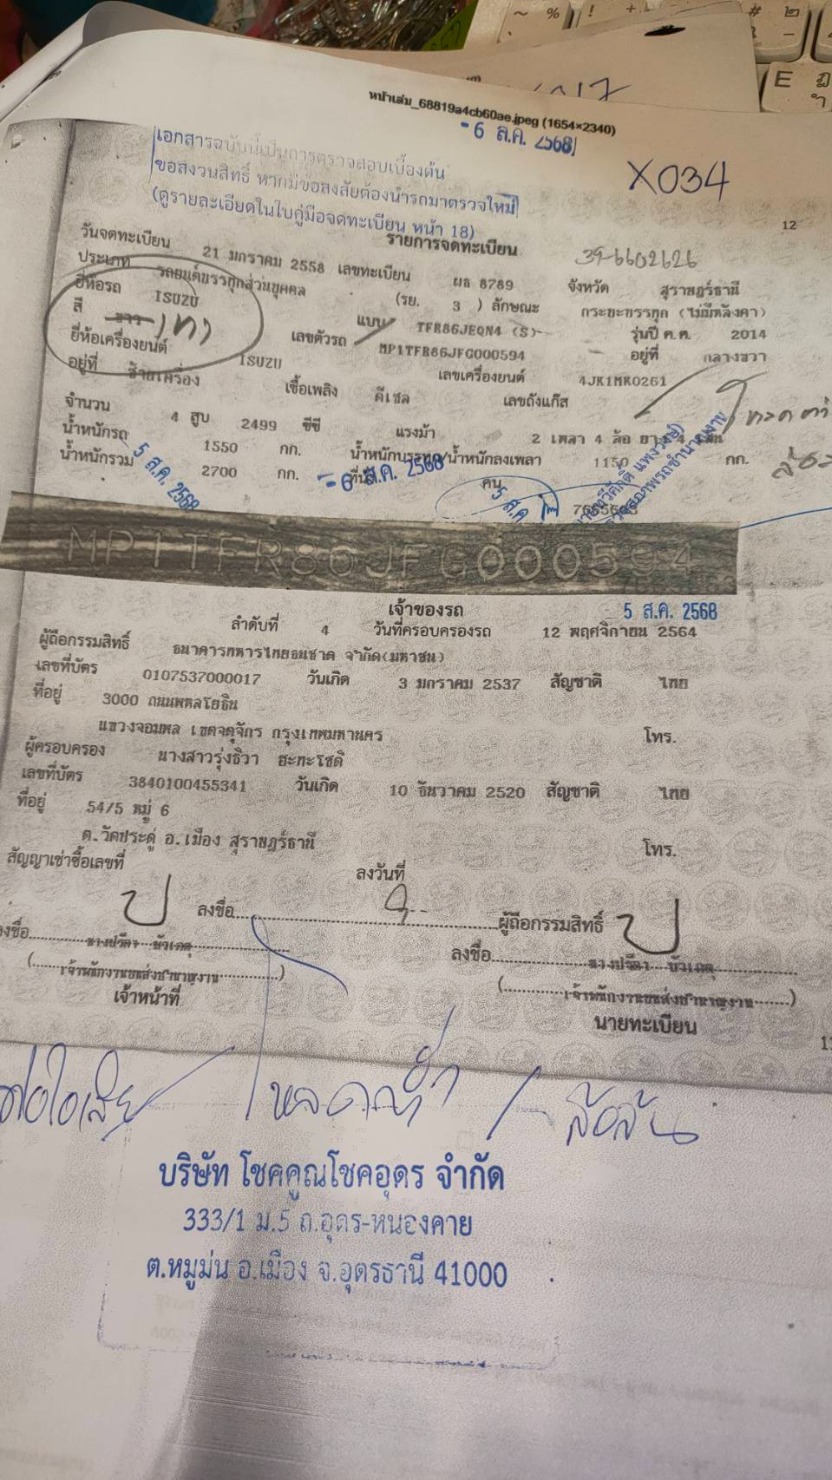 หน้าเล่ม_68819a4cb60ae.jpeg (1654×2340)
- 6 ส.ค. 2568
เอกสารฉบับนี้เป็นการตรวจสอบเบื้องต้น
ขอสงวนสิทธิ์ หากมีข้อสงสัยต้องนำรถมาตรวจใหม่
(ดูรายละเอียดในใบคู่มือจดทะเบียน หน้า 18)
X034
12
รายการจดทะเบียน
39-6602626
วันจดทะเบียน 21 มกราคม 2558 เลขทะเบียน ผธ 8789 จังหวัด สุราษฎร์ธานี
ประเภท รถยนต์บรรทุกส่วนบุคคล (รย. 3 ) ลักษณะ กระบะบรรทุก (ไม่มีหลังคา)
ยี่ห้อรถ ISUZU แบบ TFR86JEQN4 (S) รุ่นปี ค.ศ. 2014
สี เทา เลขตัวรถ MP1TFR86JFG000594 อยู่ที่ กลางขวา
ยี่ห้อเครื่องยนต์ ISUZU เลขเครื่องยนต์ 4JK1MR0261
อยู่ที่ ซ้ายเครื่อง เชื้อเพลิง ดีเซล เลขถังแก๊ส
จำนวน 4 สูบ 2499 ซีซี แรงม้า 2 เพลา 4 ล้อ ยาง 4 เส้น
น้ำหนักรถ 1550 กก. น้ำหนักบรรทุก/น้ำหนักลงเพลา 1150 กก.
น้ำหนักรวม 2700 กก. ที่นั่ง คน
5 ส.ค. 2568
- 6 ส.ค. 2568
5 ส.ค.
MP1TFR86JFG000594
เจ้าของรถ
5 ส.ค. 2568
ลำดับที่ 4 วันที่ครอบครองรถ 12 พฤศจิกายน 2564
ผู้ถือกรรมสิทธิ์ ธนาคารทหารไทยธนชาต จำกัด(มหาชน)
เลขที่บัตร 0107537000017 วันเกิด 3 มกราคม 2537 สัญชาติ ไทย
ที่อยู่ 3000 ถนนพหลโยธิน
แขวงจอมพล เขตจตุจักร กรุงเทพมหานคร โทร.
ผู้ครอบครอง นางสาวรุ่งธิวา ฮะทะโชติ
เลขที่บัตร 3840100455341 วันเกิด 10 ธันวาคม 2520 สัญชาติ ไทย
ที่อยู่ 54/5 หมู่ 6
ต.วัดประดู่ อ.เมือง สุราษฎร์ธานี โทร.
สัญญาเช่าซื้อเลขที่ ลงวันที่
ลงชื่อ ผู้ถือกรรมสิทธิ์
ลงชื่อ นางปรีดา บัวเกตุ ลงชื่อ นางปรีดา บัวเกตุ
(เจ้าพนักงานขนส่งชำนาญงาน) (เจ้าพนักงานขนส่งชำนาญงาน)
เจ้าหน้าที่ นายทะเบียน
บริษัท โชคคูณโชคอุดร จำกัด
333/1 ม.5 ถ.อุดร-หนองคาย
ต.หมูม่น อ.เมือง จ.อุดรธานี 41000